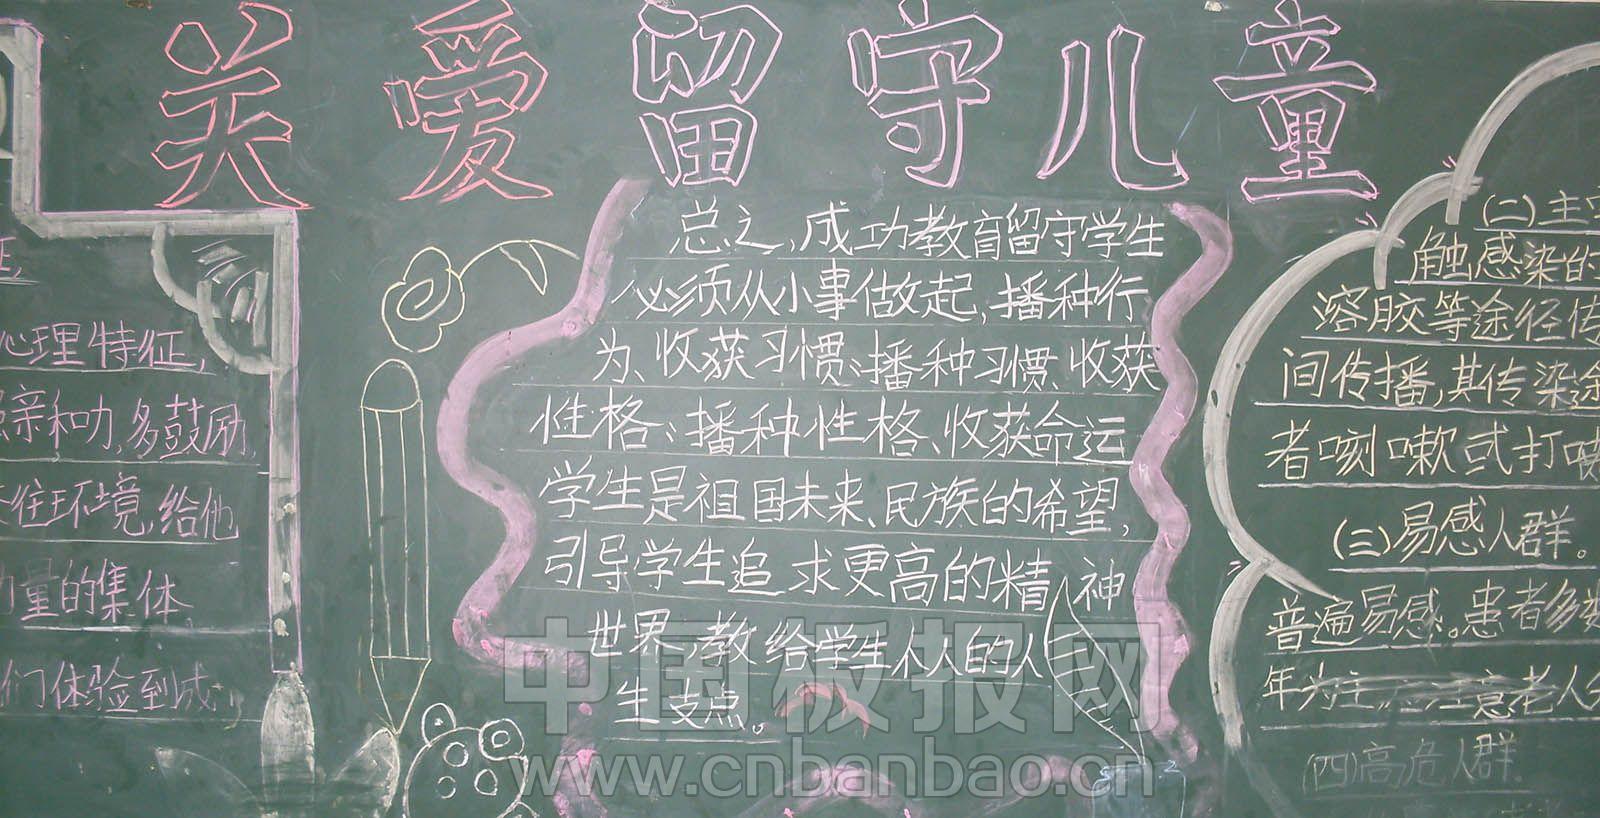 关爱留守儿童
心理特征,
亲和力,多鼓励,
往环境,给他
量的集体
们体验到成
总之,成功教育留守学生
必须从小事做起,播种行
为、收获习惯;播种习惯、收获
性格;播种性格、收获命运
学生是祖国未来、民族的希望,
引导学生追求更高的精神
世界,教给学生个人的人
生支点。
(二)主
触感染的
溶胶等途径传
间传播,其传染途
者咳嗽或打喷
(三)易感人群。
普遍易感。患者多
年为主 注意老人
(四)高危人群.
中国板报网
www.cnbanbao.cn